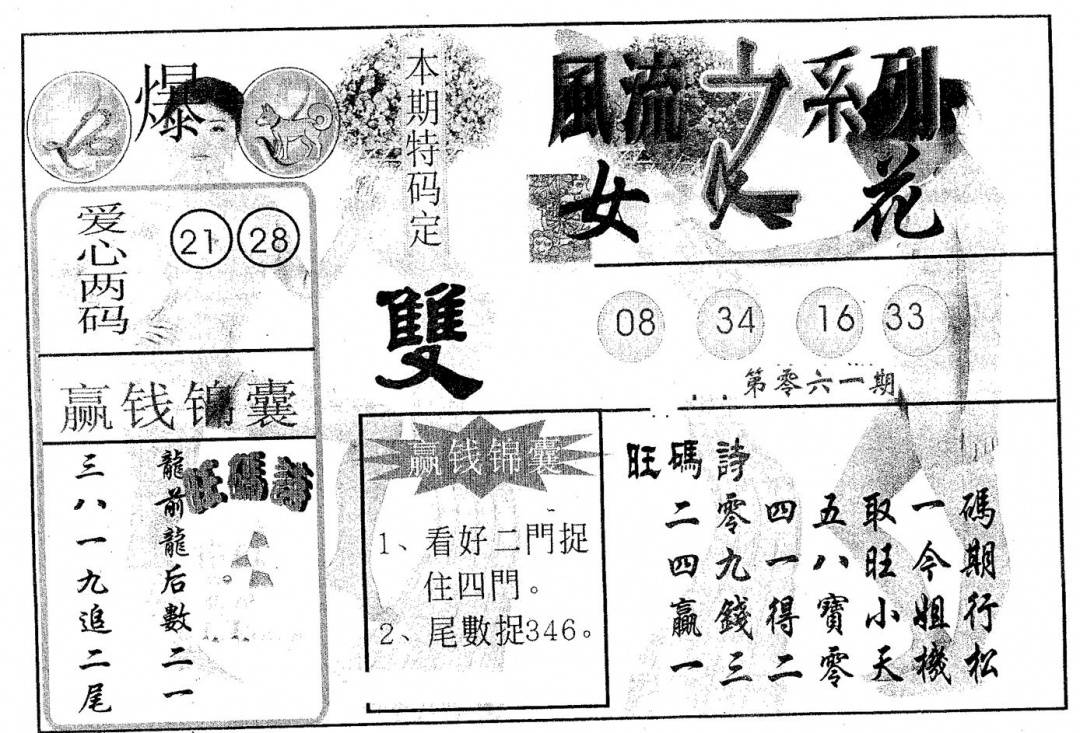 爆
本期特码定
雙
風流之系列
女人花
爱心两码
21 28
08 34 16 33
第零六一期
赢钱锦囊
旺碼詩
龍前龍后數二一
三八一九追二尾
赢钱锦囊
1、看好二門捉
住四門。
2、尾數捉346。
旺碼詩
二零四五取一碼
四九一八旺今期
贏錢得寶小姐行
一三二零天機松